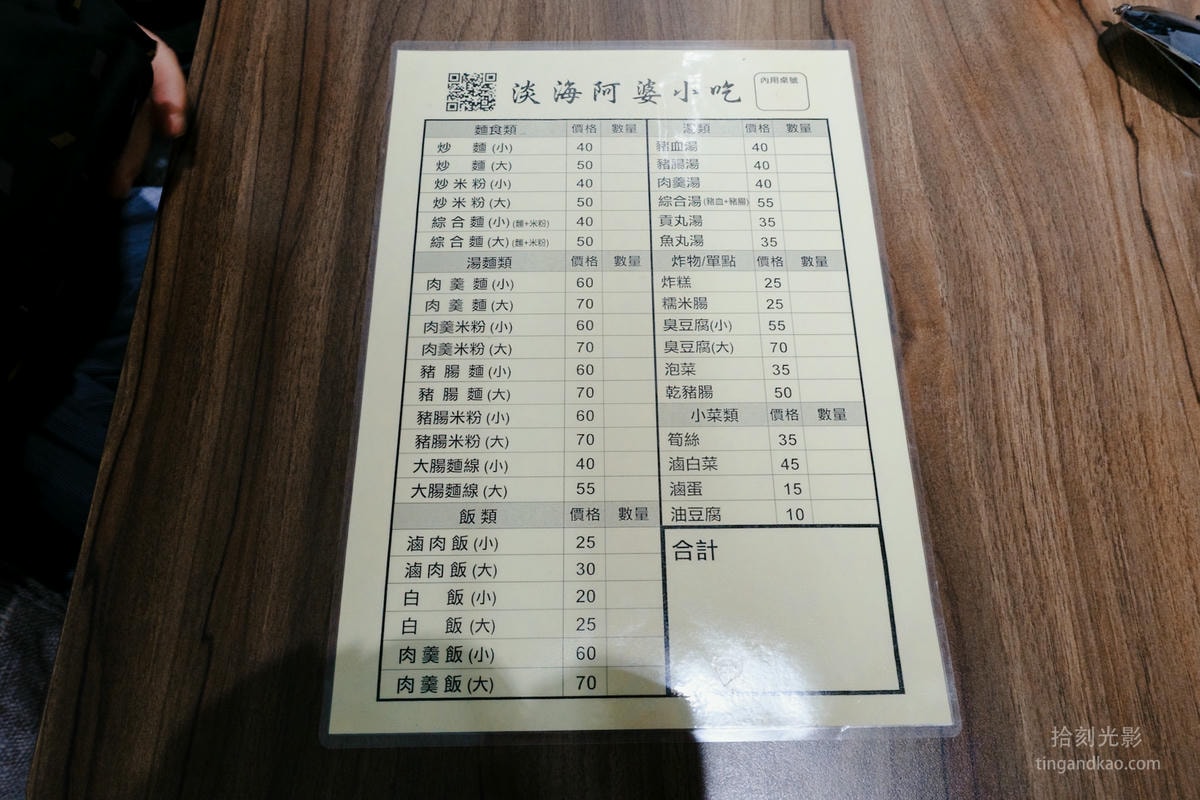 淡海阿婆小吃
內用桌號
麵食類 價格 數量
炒 麵 (小) 40
炒 麵 (大) 50
炒米粉 (小) 40
炒米粉 (大) 50
綜合麵 (小) (麵+米粉) 40
綜合麵 (大) (麵+米粉) 50
湯麵類 價格 數量
肉羹麵 (小) 60
肉羹麵 (大) 70
肉羹米粉 (小) 60
肉羹米粉 (大) 70
豬腸麵 (小) 60
豬腸麵 (大) 70
豬腸米粉 (小) 60
豬腸米粉 (大) 70
大腸麵線 (小) 40
大腸麵線 (大) 55
飯類 價格 數量
滷肉飯 (小) 25
滷肉飯 (大) 30
白 飯 (小) 20
白 飯 (大) 25
肉羹飯 (小) 60
肉羹飯 (大) 70
湯類 價格 數量
豬血湯 40
豬腸湯 40
肉羹湯 40
綜合湯 (豬血+豬腸) 55
貢丸湯 35
魚丸湯 35
炸物/單點 價格 數量
炸糕 25
糯米腸 25
臭豆腐(小) 55
臭豆腐(大) 70
泡菜 35
乾豬腸 50
小菜類 價格 數量
筍絲 35
滷白菜 45
滷蛋 15
油豆腐 10
合計
拾刻光影
tingandkao.com